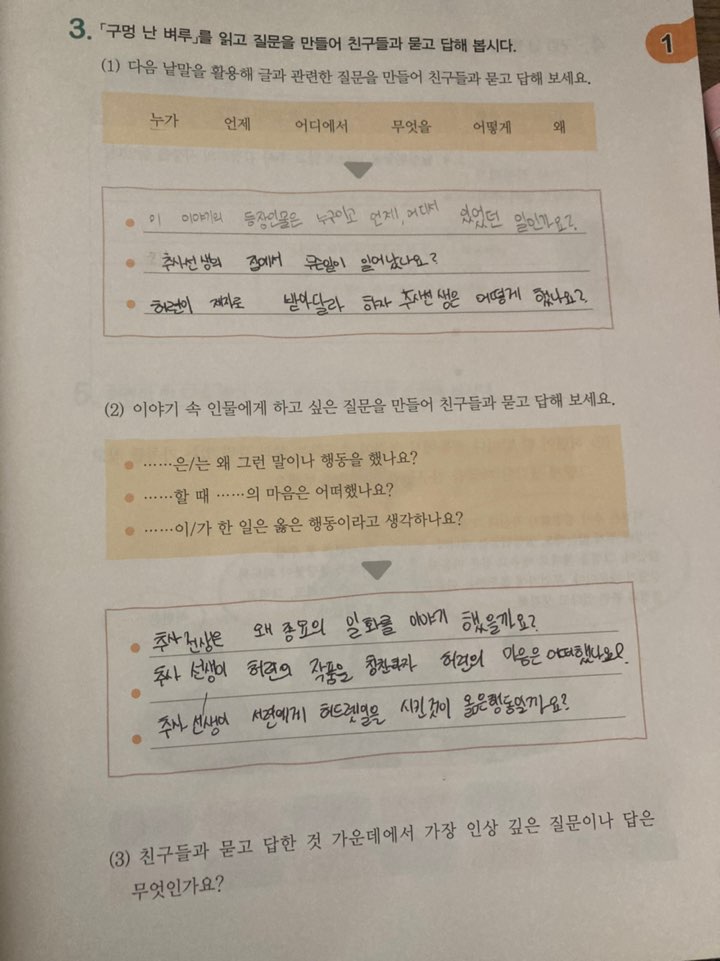 3. 「구멍 난 벼루」를 읽고 질문을 만들어 친구들과 묻고 답해 봅시다.
1
(1) 다음 낱말을 활용해 글과 관련한 질문을 만들어 친구들과 묻고 답해 보세요.
누가 언제 어디에서 무엇을 어떻게 왜
이 이야기의 등장인물은 누구이고 언제, 어디서 있었던 일인가요?
추사선생의 집에서 무슨일이 일어났나요?
허련이 제자로 받아달라 하자 추사선생은 어떻게 했나요?
(2) 이야기 속 인물에게 하고 싶은 질문을 만들어 친구들과 묻고 답해 보세요.
……은/는 왜 그런 말이나 행동을 했나요?
……할 때 ……의 마음은 어떠했나요?
……이/가 한 일은 옳은 행동이라고 생각하나요?
추사 왜 종요의 일화를 이야기 했을까요?
추사 선생이 허련의 작품을 칭찬하자 허련의 마음은 어떠했나요?
추사 선생이 허드렛일을 시킨것이 옳은행동일까요?
(3) 친구들과 묻고 답한 것 가운데에서 가장 인상 깊은 질문이나 답은
무엇인가요?